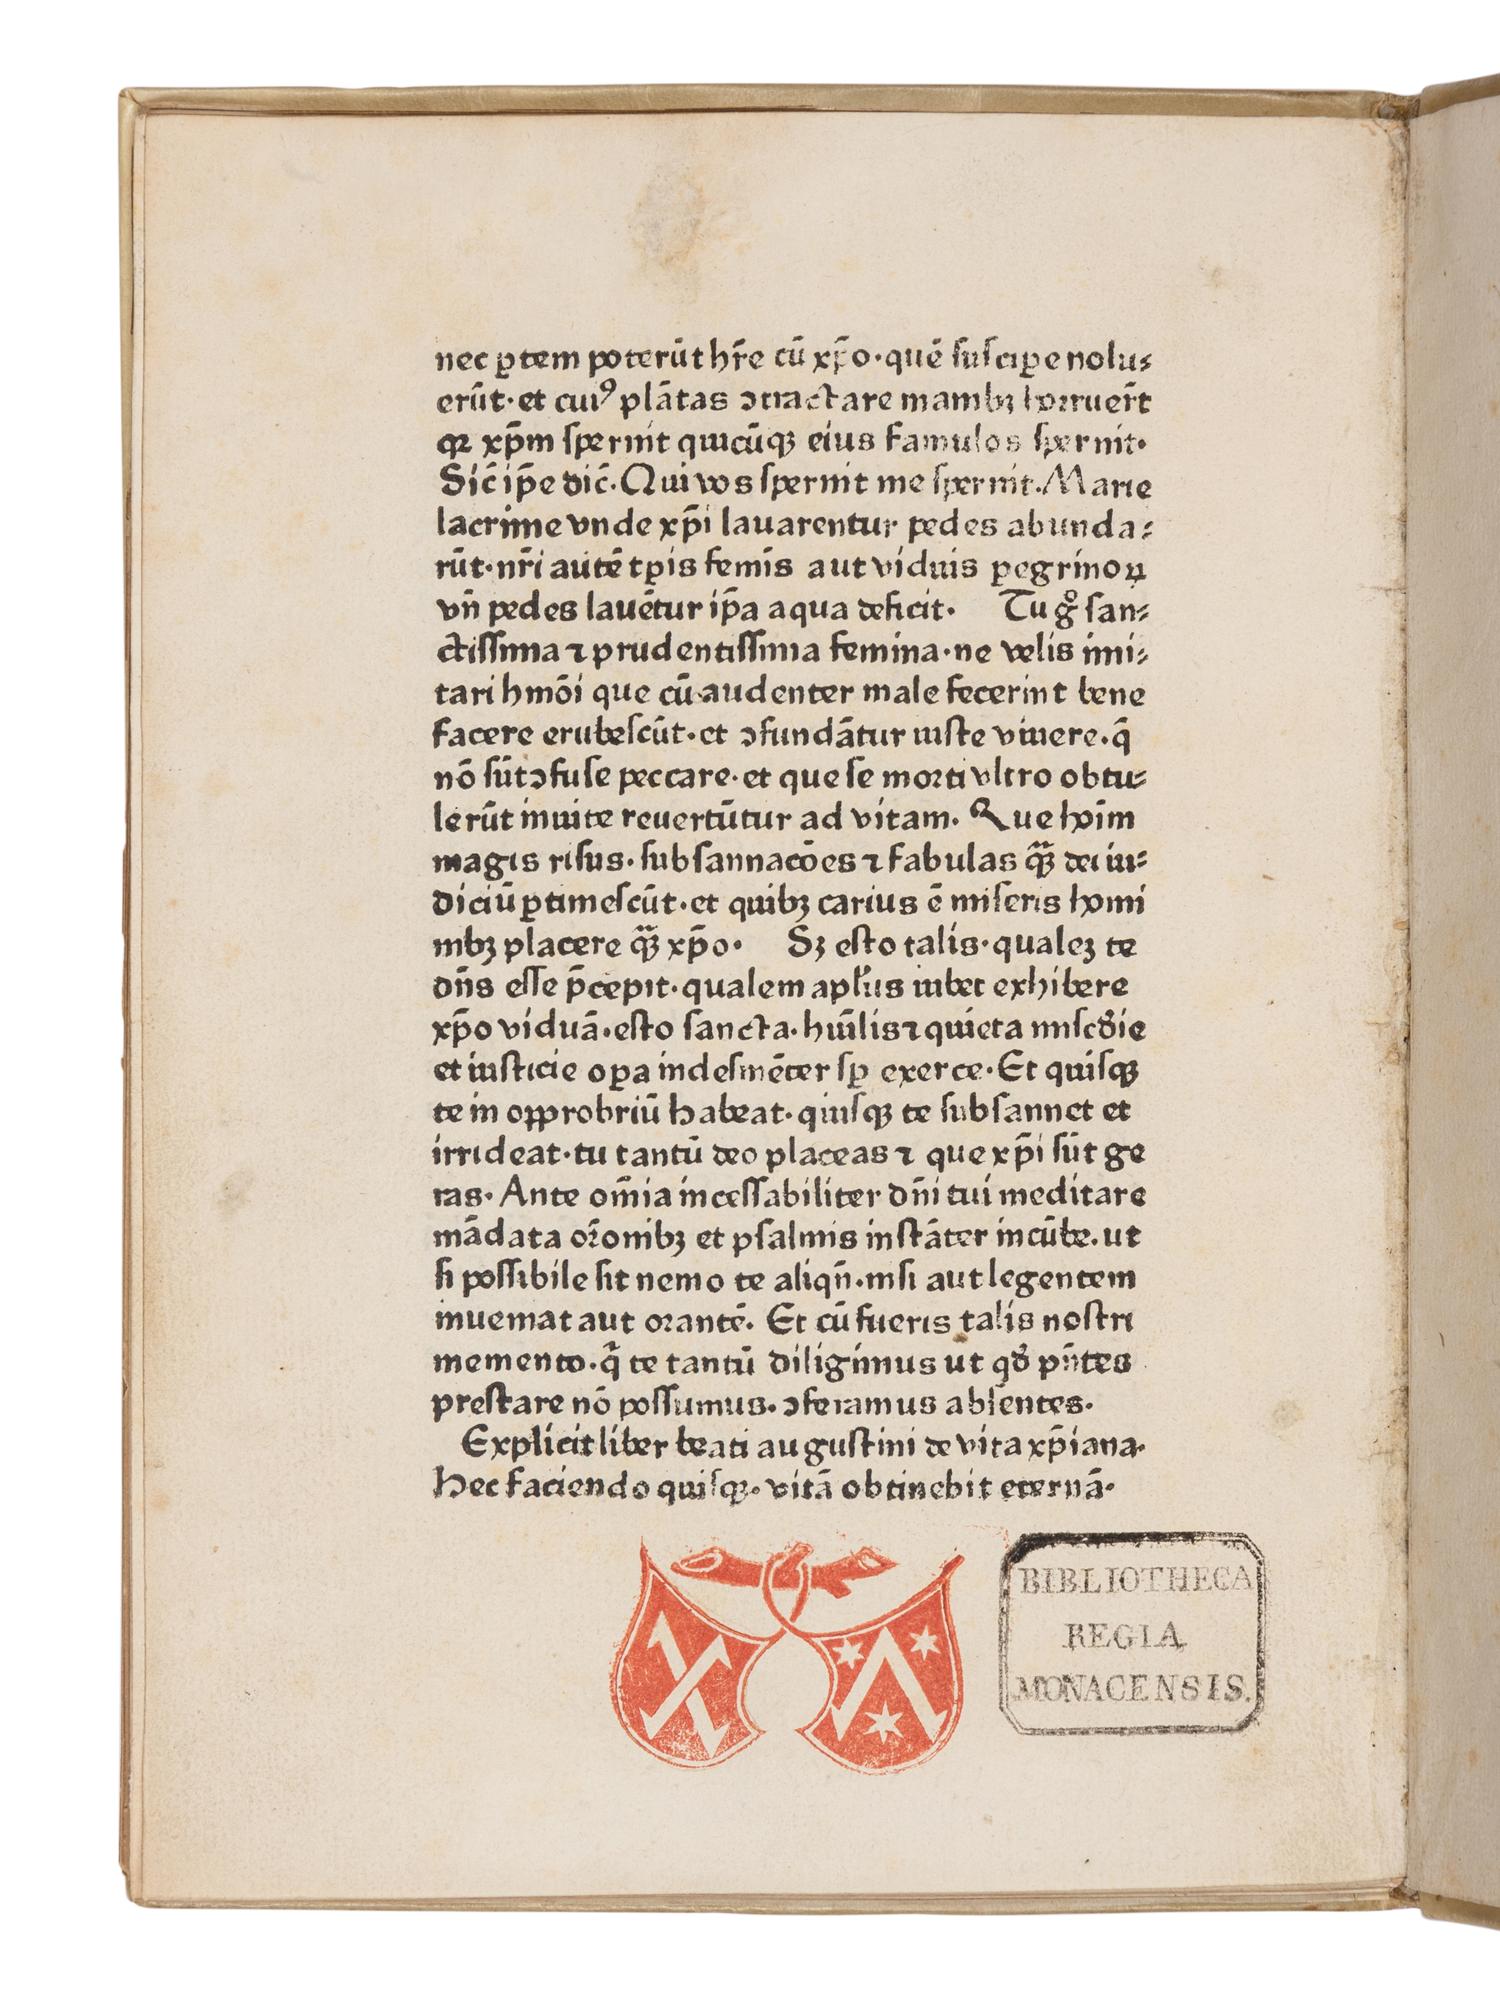 nec ꝑtem poterūt hr̄e cū xp̄o·quē ſuſciꝑe nolu⸗
erūt·et cuiꝰ plātas ↄtractare manibꝫ horruer̄t
qꝛ xp̄m ſpernit quicūqꝫ eius famulos ſpernit·
Sic̄ ip̄e dic̄·Qui vos ſpernit me ſpernit·Marie
lacrime vnde xp̄i lauarentur pedes abunda⸗
rūt·nr̄i autē tꝑis femīs aut viduis ꝑegrinoꝝ
vn̄ pedes lauētur ip̄a aqua deficit· Tu gͦ ſan⸗
ctiſſima ⁊ prudentiſſima femina·ne velis imi⸗
tari hmōi que cū audenter male fecerint bene
facere erubeſcūt·et ↄfundātur iuſte viuere·q̄
nō ſūt ↄfuſe peccare·et que ſe morti vltro obtu⸗
lerūt inuite reuertūtur ad vitam. Que hoīm
magis riſus·ſubſannacōes ⁊ fabulas qꝫ̄ dei iu⸗
diciū ꝑtimeſcūt·et quibꝫ carius ē miſeris homi
nibꝫ placere qꝫ̄ xp̄o· Sꝫ eſto talis·qualeꝫ te
dn̄s eſſe p̄cepit·qualem apl̄us iubet exhibere
xp̄o viduā·eſto ſancta·hūilis ⁊ quieta miſcd̄ie
et iuſticie oꝑa indeſinēter ſꝑ exerce·Et quiſqꝫ
te in opprobriū habeat·quiſqꝫ te ſubſannet et
irrideat·tu tantū deo placeas ⁊ que xp̄i ſūt ge
ras· Ante om̄ia inceſſabiliter dn̄i tui meditare
mādata or̄onibꝫ et pſalmis inſtāter incūbe.ut
ſi poſſibile ſit nemo te aliqn̄·niſi aut legentem
inueniat aut orantē. Et cū fueris talis noſtri
memento·q̄ te tantū diligimus ut qd̄ pn̄tes
preſtare nō poſſumus·ↄferamus abſentes·
Explicit liber beati auguſtini de vita xp̄iana·
Hec faciendo quiſqꝫ·vitā obtinebit eternā·
BIBLIOTHECA
REGIA
MONACENSIS.